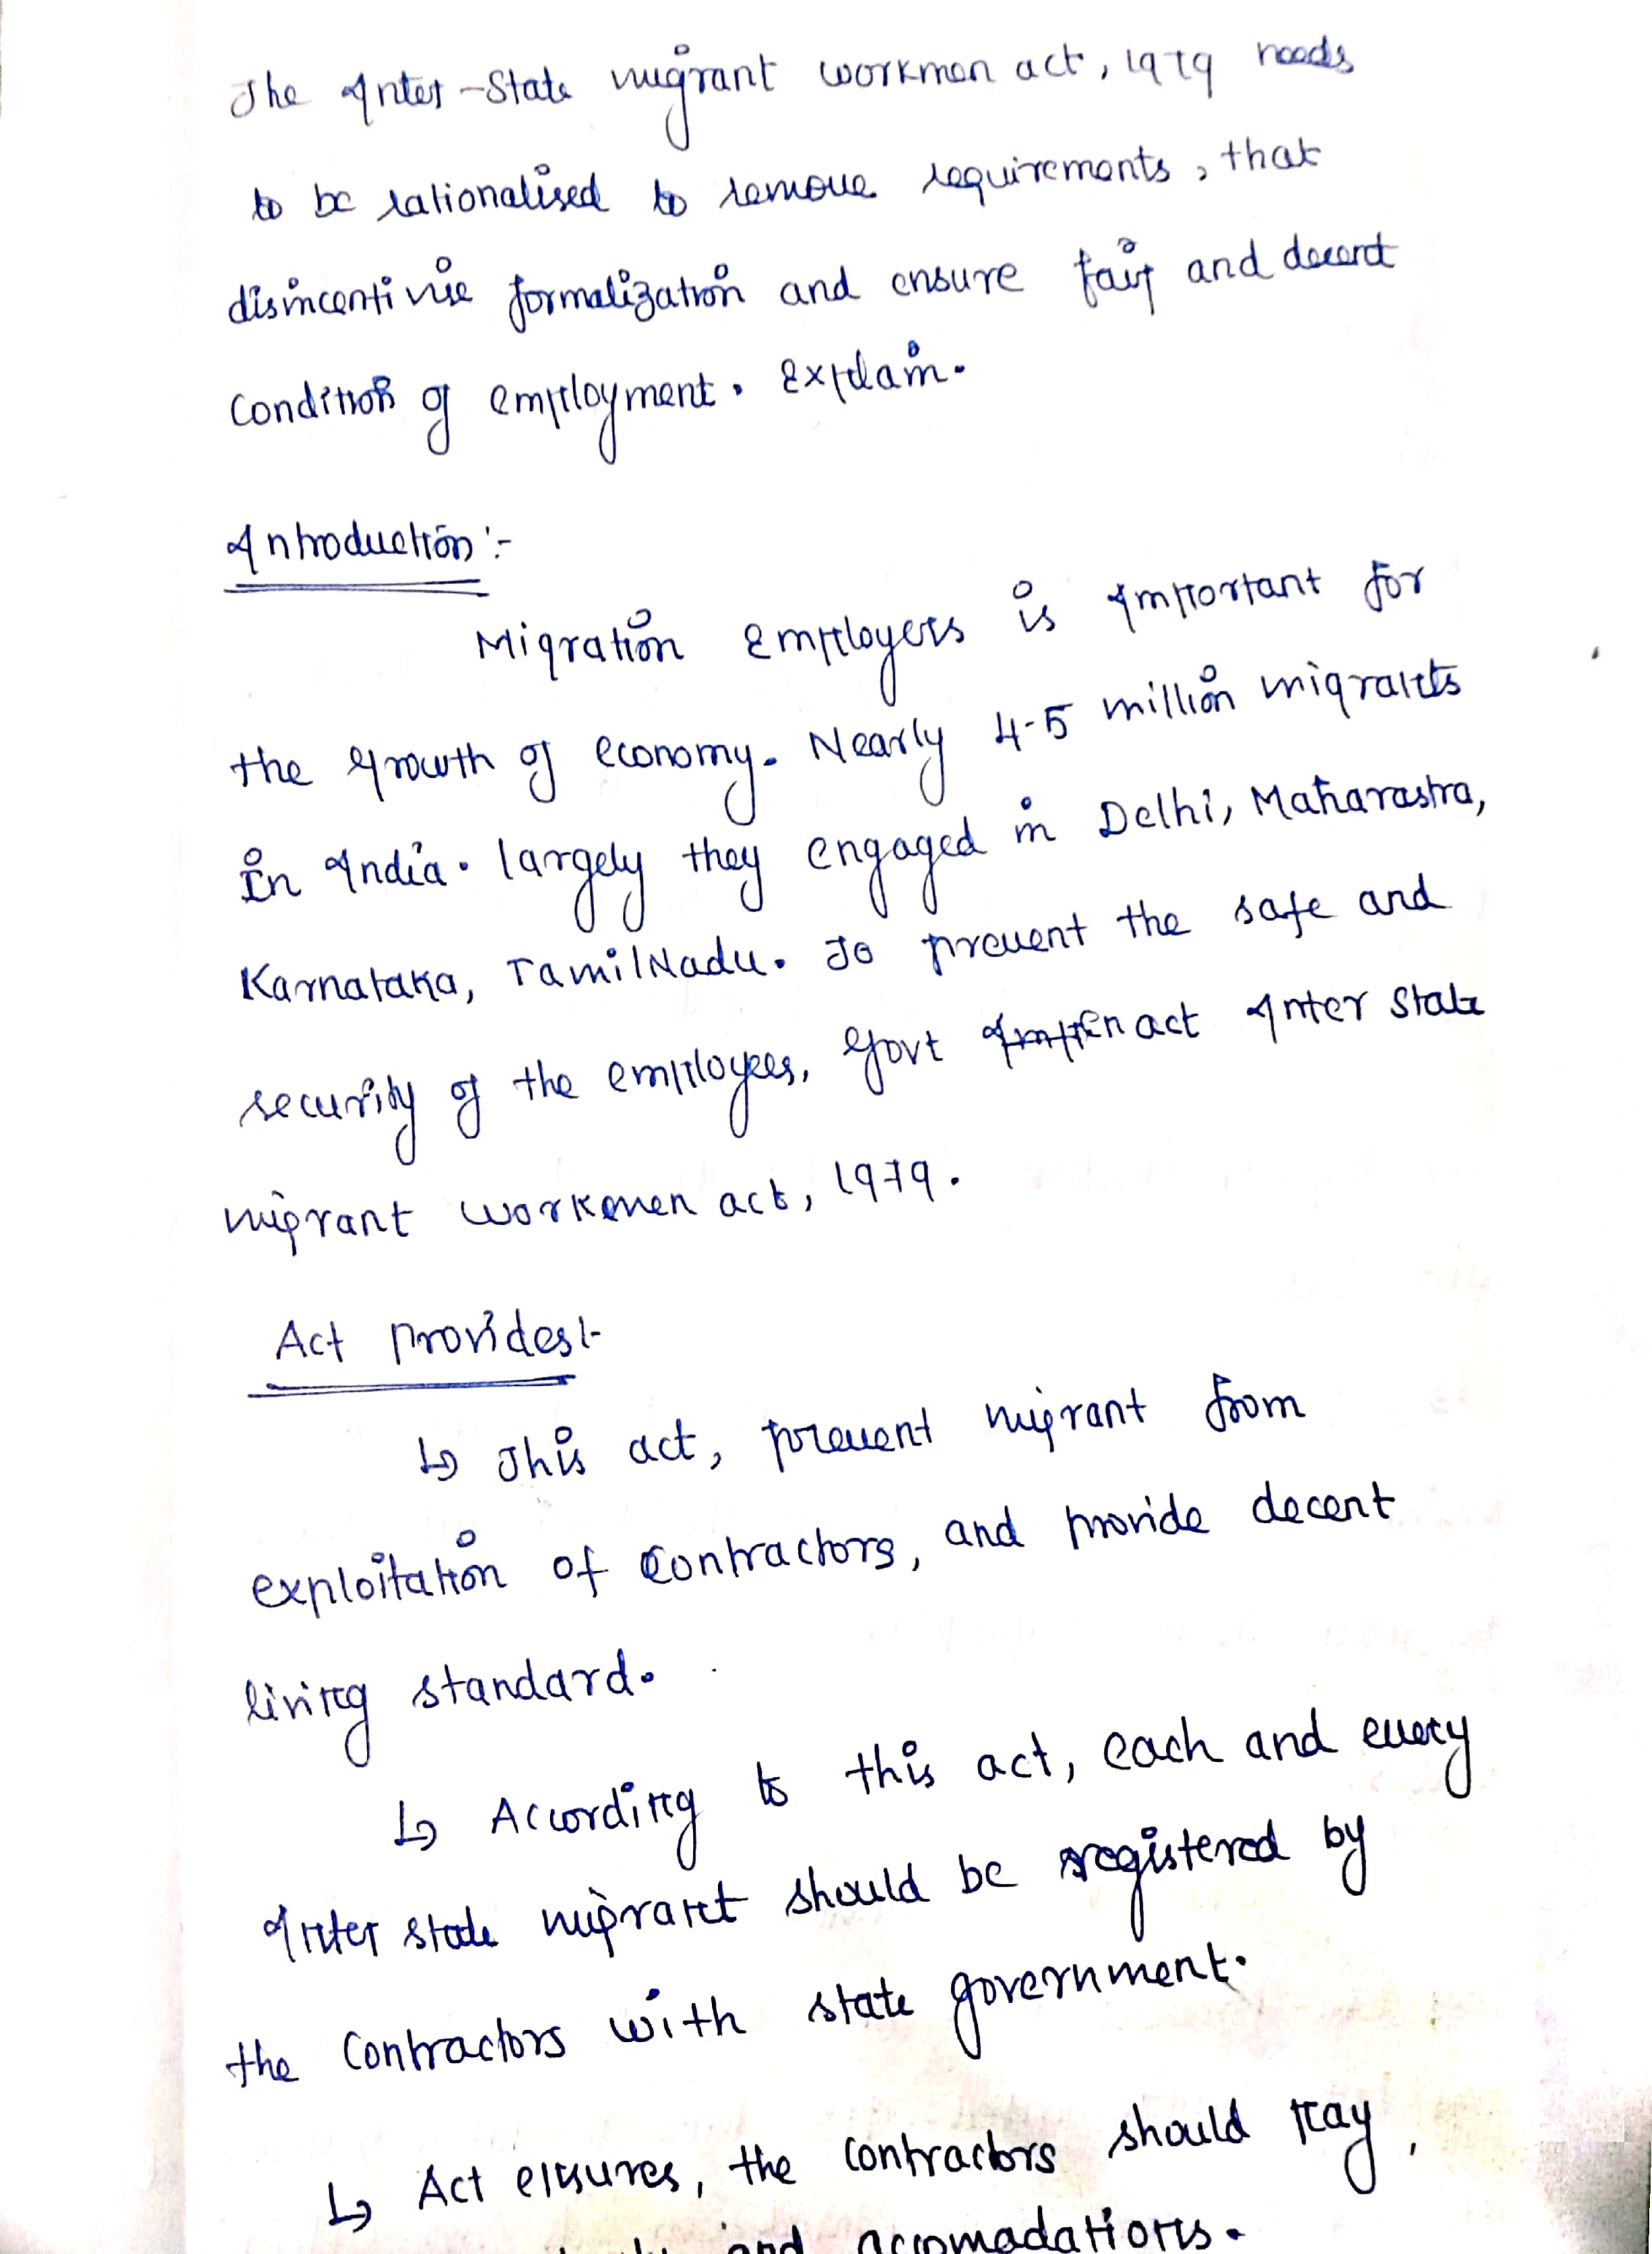 The Inter-State migrant workmen act, 1979 needs
to be rationalised to remove requirements, that
disincentivise formalization and ensure fair and decent
condition of employment. Explain.
Introduction:-
Migration Employers is important for
the growth of economy. Nearly 4-5 million migrants
in India. largely they engaged in Delhi, Maharastra,
Karnataka, TamilNadu. To prevent the safe and
security of the employees, Govt enact Inter State
migrant workmen act, 1979.
Act provides:-
↳ This act, prevent migrant from
exploitation of contractors, and provide decent
living standard.
↳ According to this act, each and every
Inter state migrant should be registered by
the contractors with state government.
↳ Act ensures, the contractors should pay,
and accomadations.